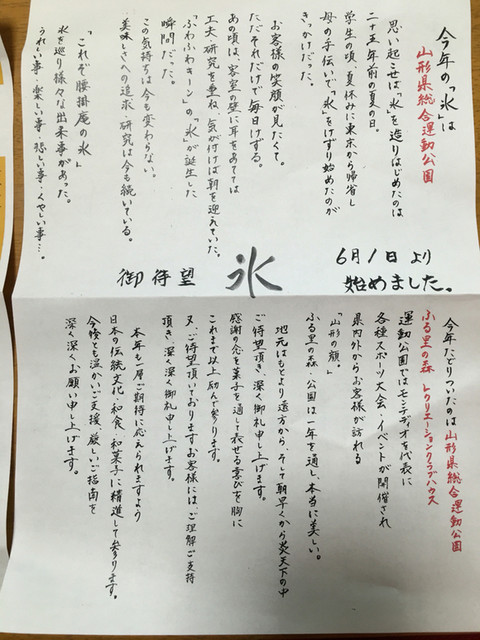 今年の「氷」は
山形県総合運動公園
思い起こせば「氷」を造りはじめたのは
二十五年前の夏の日。
学生の頃、夏休みに東京から帰省し
母の手伝いで「氷」をけずり始めたのが
きっかけだった。
お客様の笑顔が見たくて。
ただそれだけで毎日けずる。
あの頃は、客室の壁に耳をあてては
工夫・研究を重ね、気が付けば朝を迎えていた。
「ふわふわキーン」の「氷」が誕生した
瞬間だった。
この気持ちは今も変わらない。
美味しさへの追求・研究は今も続いている。
「これぞ腰掛庵の氷」
氷を巡り様々な出来事があった。
うれしい事・楽しい事・悲しい事・くやしい事…。
御待望
氷
6月1日より
始めました。
今年たどりついたのは山形県総合運動公園
ふる里の森 レクリエーションクラブハウス
運動公園ではモンテディオを代表に
各種スポーツ大会・イベントが開催され
県内外からお客様が訪れる
「山形の顔。」
ふる里の森・公園は一年を通し、本当に美しい。
地元はもとより遠方から、そして朝早くから炎天下の中
ご待望頂き、深く御礼申し上げます。
感謝の念を菓子を通して表せる喜びを胸に
これまで以上励んで参ります。
又、ご待望頂いておりますお客様には、ご理解ご支持
頂き、深く深く御礼申し上げます。
本年も一層ご期待に応えられますよう
日本の伝統文化・和食・和菓子に精進して参ります。
今後とも温かいご支援、厳しいご指南を
深く深くお願い申し上げます。